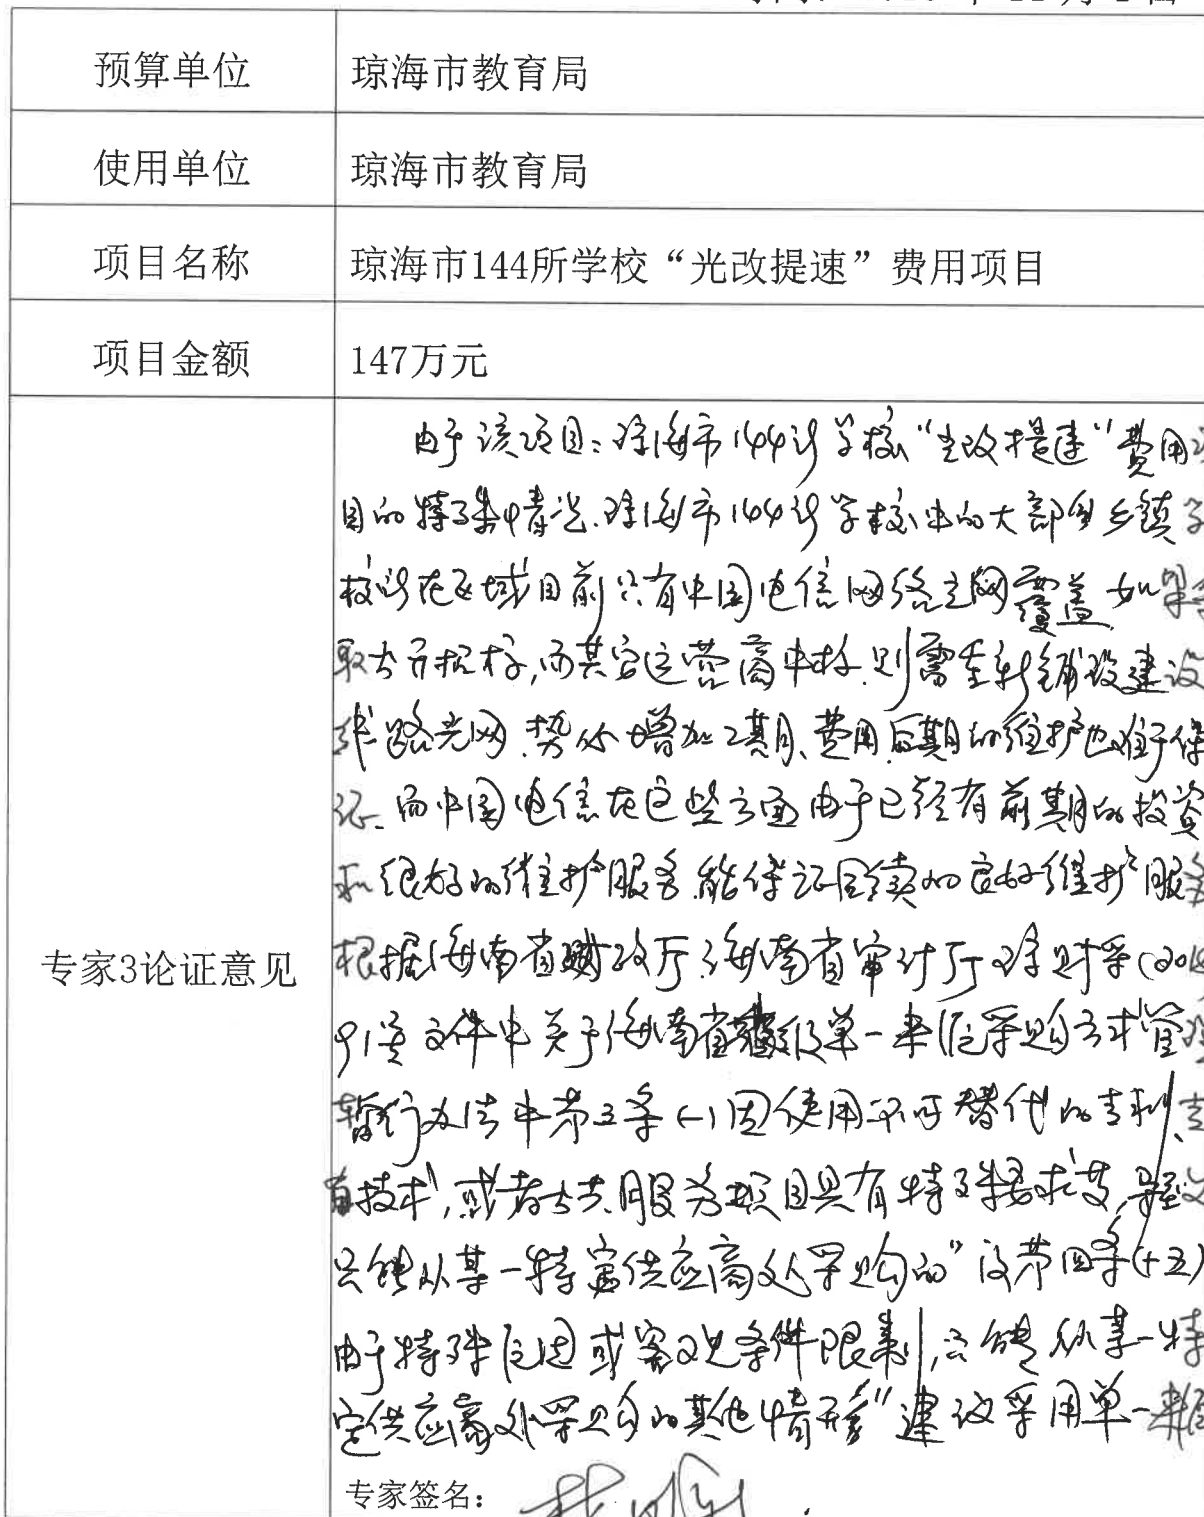 预算单位 琼海市教育局
使用单位 琼海市教育局
项目名称 琼海市144所学校“光改提速”费用项目
项目金额 147万元
专家3论证意见
由于该项目:琼海市144所学校“光改提速”费用项
目的特殊情况.琼海市144所学校中的大部分乡镇学
校所在区域目前只有中国电信网络主网覆盖.如果采
取公开招标,而其它运营商中标.则需重新铺设建设
线路光网.势必增加工期、费用.后期的维护也难于保
证.而中国电信在这些方面由于已经有前期的投资
和很好的维护服务.能保证后续的良好维护服务
根据海南省财政厅.海南省审计厅琼财采(201
91号文件中关于海南省省级单一来源采购方式管理
暂行办法中第三条(一)因使用不可替代的专利、专
有技术,或者公共服务项目具有特殊要求,导致
只能从某一特定供应商处采购的”及第四条(十五)
由于特殊原因或客观条件限制,只能从某一特
定供应商处采购的其他情形”建议采用单一来源
专家签名: